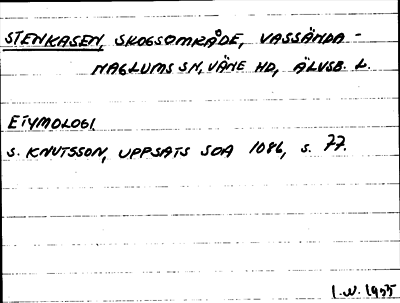 STENKASEN, SKOGSOMRÅDE, VASSÄNDA -
NAGLUMS SN, VÄNE HD, ÄLVSB. L.
ETYMOLOGI.
S. KNUTSSON, UPPSATS SOA 1086, S. 77.
I.W. 1955